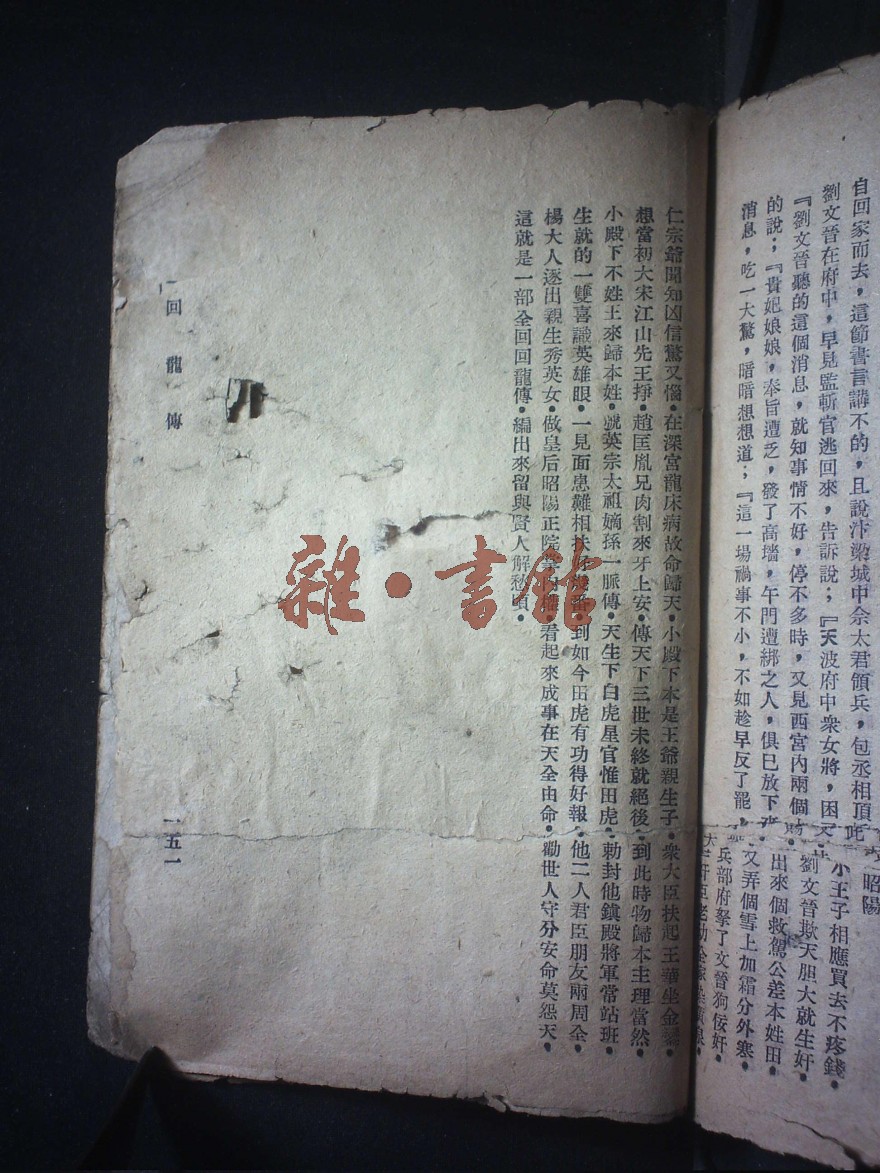 自回家而去，這節書言講不的，且說汴梁城中佘太君領兵，包丞相頂
劉文晉在府中，早見監斬官逃回來，告訴說；『天波府中衆女將，困
『劉文晉聽的這個消息，就知事情不好，停不多時，又見西宮內兩個
的說；『貴妃娘娘，奉旨遭乏，發了高墻，午門遭綁之人，俱已放下
消息，吃一大驚，暗暗想想道；『這一場禍事不小，不如趁早反了罷，
昭陽
小王子相應買去不疼錢●
劉文晉欺天胆大就生奸●
出來個救駕公差本姓田●
又弄個雪上加霜分外寒●
兵部府拏了文晉狗佞奸●
仁宗爺聞知凶信驚又惱●在深宮龍床病故命歸天●小殿下本是王爺親生子●衆大臣扶起王華坐金鑾●
想當初大宋江山先王掙●趙匡胤兄肉割來牙上安●傳天下三世未終就絕後●到此時物歸本主理當然●
小殿下不姓王來歸本姓●號英宗太祖嫡孫一脈傳●天生下白虎星官惟田虎●勅封他鎮殿將軍常站班●
生就的一雙喜識英雄眼●一見面患難相扶●到如今田虎有功得好報●他二人君臣朋友兩周全●
楊大人逐出親生秀英女●做皇后昭陽正院●看起來成事在天全由命●勸世人守分安命莫怨天●
這就是一部全回回龍傳●編出來留與賢人解愁煩●
回龍傳
一五一
雜·書館